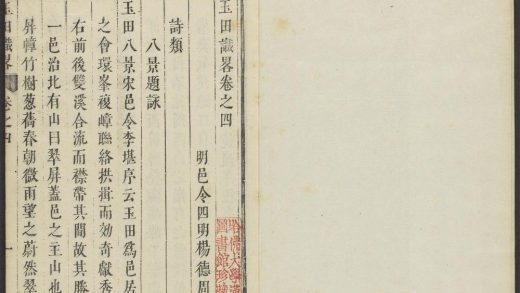 玉田識畧卷之四
明邑令四明楊德周
詩類
八景題詠
玉田八景宋邑令李堪序云玉田為邑居
之會環峯複嶂聯絡拱揖而効奇獻秀
右前後雙溪合流而襟帶其間故其勝
一邑治北有山曰翠屏蓋邑之主山也
屏幛竹樹葱蒨春朝微雨望之蔚然翠
玉田識畧
卷之四
一